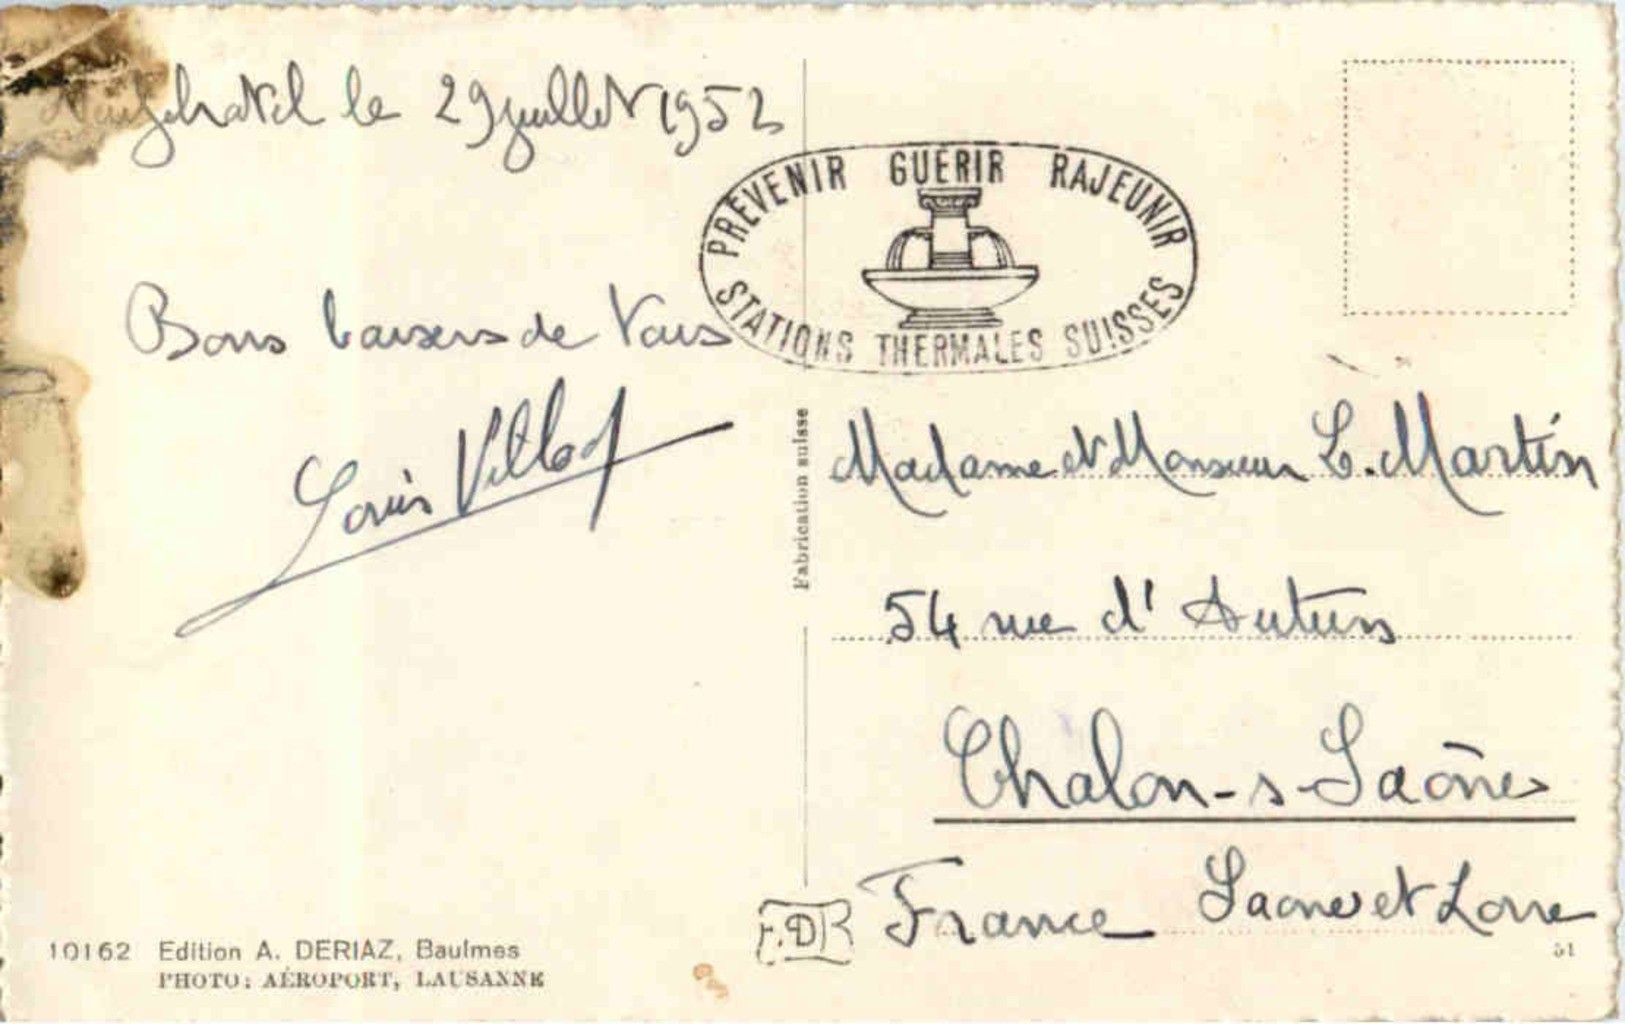 Neufchatel le 29 juillet 1952
Bons baisers de Tous
Louis
PRÉVENIR GUÉRIR RAJEUNIR
STATIONS THERMALES SUISSES
Fabrication suisse
Madame et Monsieur L. Martin
54 rue d'Autun
Chalon-s-Saône
France Saone et Loire
10162 Edition A. DERIAZ, Baulmes
PHOTO: AÉROPORT, LAUSANNE
51